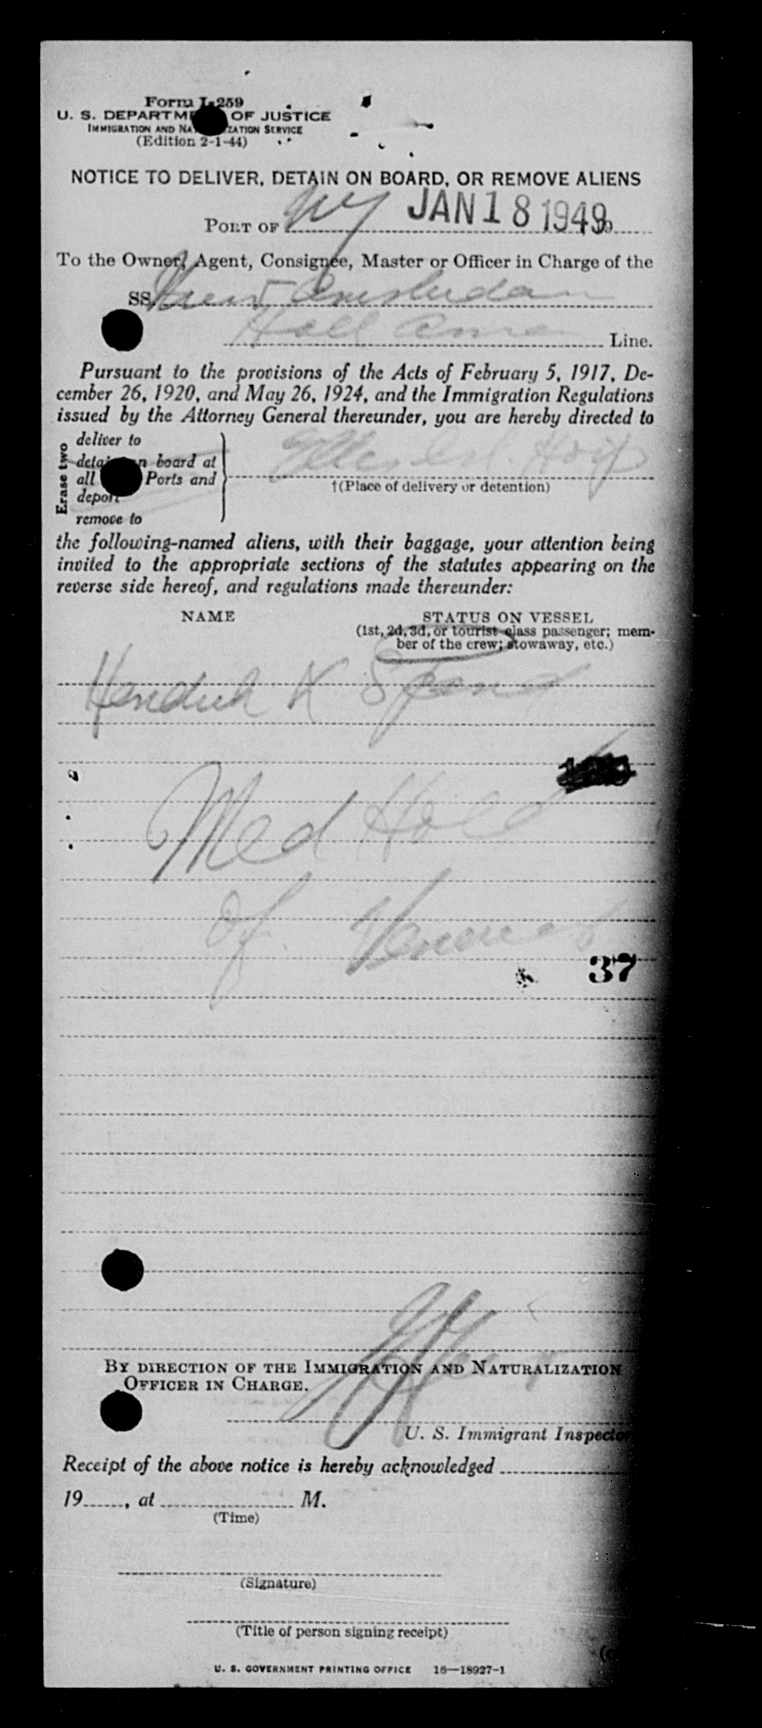 Form I-259
U. S. DEPARTMENT OF JUSTICE
IMMIGRATION AND NATURALIZATION SERVICE
(Edition 2-1-44)
NOTICE TO DELIVER, DETAIN ON BOARD, OR REMOVE ALIENS
PORT OF NY JAN 18 1949
To the Owner, Agent, Consignee, Master or Officer in Charge of the
SS Nieuw Amsterdam
Holl Amer Line.
Pursuant to the provisions of the Acts of February 5, 1917, De-
cember 26, 1920, and May 26, 1924, and the Immigration Regulations
issued by the Attorney General thereunder, you are hereby directed to
Erase two
deliver to
detain on board at
all Ports and
deport
remove to
Ellis Isl. Hosp
†(Place of delivery or detention)
the following-named aliens, with their baggage, your attention being
invited to the appropriate sections of the statutes appearing on the
reverse side hereof, and regulations made thereunder:
NAME
STATUS ON VESSEL
(1st, 2d, 3d, or tourist-class passenger; mem-
ber of the crew; stowaway, etc.)
Hendrik K
Med Hold
of
37
BY DIRECTION OF THE IMMIGRATION AND NATURALIZATION
OFFICER IN CHARGE.
U. S. Immigrant Inspector
Receipt of the above notice is hereby acknowledged
19......, at M.
(Time)
(Signature)
(Title of person signing receipt)
U. S. GOVERNMENT PRINTING OFFICE 16—18927-1